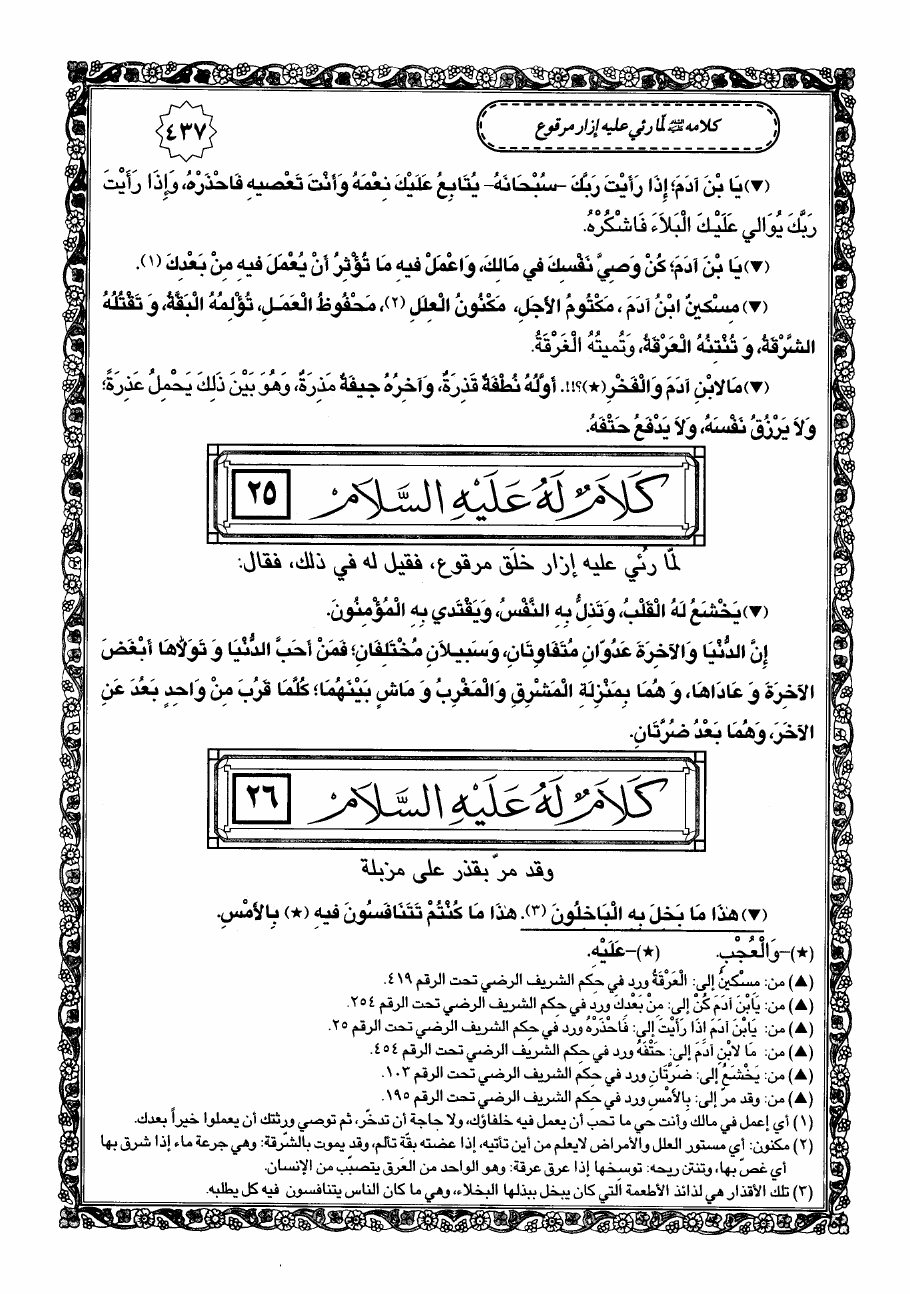 كلامه عليه السلام لمّا رئي عليه إزار مرقوع
٤٣٧
(▼) يَا بْنَ آدَمَ؛ إِذَا رَأَيْتَ رَبَّكَ –سُبْحَانَهُ– يُتَابِعُ عَلَيْكَ نِعْمَهُ وَأَنْتَ تَعْصيهِ فَاحْذَرْهُ، وَإِذَا رَأَيْتَ
رَبَّكَ يُوَالي عَلَيْكَ الْبَلاَءَ فَاشْكُرْهُ.
(▼) يَا بْنَ آدَمَ؛ كُنْ وَصِيَّ نَفْسِكَ في مَالِكَ، وَاعْمَلْ فيهِ مَا تُؤْثِرُ أَنْ يُعْمَلَ فيهِ مِنْ بَعْدِكَ (١).
(▼) مِسْكينٌ ابْنُ آدَمَ، مَكْتُومُ الأَجَلِ، مَكْنُونُ الْعِلَلِ (٢)، مَحْفُوظُ الْعَمَلِ، تُؤْلِمُهُ الْبَقَّةُ، وَ تَقْتُلُهُ
الشَّرْقَةُ، وَ تُنْتِنُهُ الْعَرْقَةُ، وَتُميتُهُ الْغَرْقَةُ.
(▼) مَا لابْنِ آدَمَ وَالْفَخْرِ (★)؟!!. أَوَّلُهُ نُطْفَةٌ قَذِرَةٌ، وَآخِرُهُ جيفَةٌ مَذِرَةٌ، وَهُوَ بَيْنَ ذَلِكَ يَحْمِلُ عَذِرَةً؛
وَلاَ يَرْزُقُ نَفْسَهُ، وَلاَ يَدْفَعُ حَتْفَهُ.
كَلَامٌ لَهُ عَلَيْهِ السَّلَامُ ٢٥
لمّا رئي عليه إزار خلَق مرقوع، فقيل له في ذلك، فقال:
(▼) يَخْشَعُ لَهُ الْقَلْبُ، وَتَذِلُّ بِهِ النَّفْسُ، وَيَقْتَدي بِهِ الْمُؤْمِنُونَ.
إِنَّ الدُّنْيَا وَالآخِرَةَ عَدُوَّانِ مُتَفَاوِتَانِ، وَسَبيلاَنِ مُخْتَلِفَانِ؛ فَمَنْ أَحَبَّ الدُّنْيَا وَ تَوَلاَّهَا أَبْغَضَ
الآخِرَةَ وَ عَادَاهَا، وَ هُمَا بِمَنْزِلَةِ الْمَشْرِقِ وَالْمَغْرِبِ وَ مَاشٍ بَيْنَهُمَا؛ كُلَّمَا قَرُبَ مِنْ وَاحِدٍ بَعُدَ عَنِ
الآخَرِ، وَهُمَا بَعْدُ ضُرَّتَانِ.
كَلَامٌ لَهُ عَلَيْهِ السَّلَامُ ٢٦
وقد مرّ بقذر على مزبلة
(▼) هذَا مَا بَخِلَ بِهِ الْبَاخِلُونَ (٣). هذَا مَا كُنْتُمْ تَتَنَافَسُونَ فيهِ (★) بِالأَمْسِ.
(★)–وَالْعُجْبِ. (★)–عَلَيْهِ.
(▲) من: مِسْكينٌ إلى: الْعَرْقَةُ ورد في حِكم الشريف الرضي تحت الرقم ٤١٩.
(▲) من: يَابْنَ آدَمَ كُنْ إلى: مِنْ بَعْدِكَ ورد في حِكم الشريف الرضي تحت الرقم ٢٥٤.
(▲) من: يَابْنَ آدَمَ إِذَا رَأَيْتَ إلى: فَاحْذَرْهُ ورد في حِكم الشريف الرضي تحت الرقم ٢٥.
(▲) من: مَا لابْنِ آدَمَ إلى: حَتْفَهُ ورد في حِكم الشريف الرضي تحت الرقم ٤٥٤.
(▲) من: يَخْشَعُ إلى: ضَرَّتَانِ ورد في حِكم الشريف الرضي تحت الرقم ١٠٣.
(▲) من: وقد مرّ إلى: بِالأَمْسِ ورد في حِكم الشريف الرضي تحت الرقم ١٩٥.
(١) أي إعمل في مالك وأنت حي ما تحب أن يعمل فيه خلفاؤك، ولا حاجة أن تدخّر، ثم توصي ورثتك أن يعملوا خيراً بعدك.
(٢) مكنون: أي مستور العلل والأمراض لا يعلم من أين تأتيه، إذا عضته بقّة تألّم، وقد يموت بالشَّرقة: وهي جرعة ماء إذا شرق بها
أي غصّ بها، وتنتن ريحه: توسخها إذا عرق عرقة: وهو الواحد من العَرَق يتصبب من الإنسان.
(٣) تلك الأقذار هي لذائذ الأطعمة التي كان يبخل ببذلها البخلاء، وهي ما كان الناس يتنافسون فيه كل يطلبه.